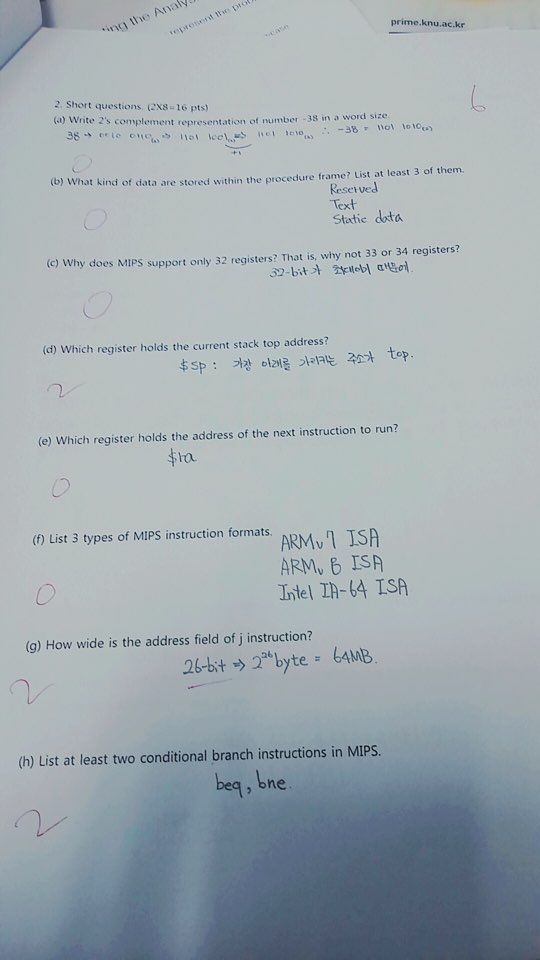 ting the Analy
represent the pro
case
prime.knu.ac.kr
6
2. Short questions. (2X8=16 pts)
(a) Write 2's complement representation of number -38 in a word size.
38 → 0010 0110(2) ⇒ 1101 1001(2) ⇒ 1101 1010(2) ∴ -38 = 1101 1010(2)
+1
0
(b) What kind of data are stored within the procedure frame? List at least 3 of them.
Reserved
Text
Static data
0
(c) Why does MIPS support only 32 registers? That is, why not 33 or 34 registers?
32-bit가 최대이기 때문에.
0
(d) Which register holds the current stack top address?
$sp : 가장 아래를 가리키는 주소가 top.
2
(e) Which register holds the address of the next instruction to run?
$ra
0
(f) List 3 types of MIPS instruction formats.
ARMv7 ISA
ARMv8 ISA
Intel IA-64 ISA
0
(g) How wide is the address field of j instruction?
26-bit ⇒ 2^26 byte = 64MB.
2
(h) List at least two conditional branch instructions in MIPS.
beq, bne.
2